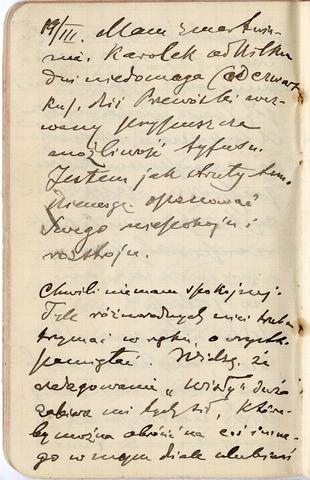 19/III. Mam zmartwie-
nie. Karolek od kilku
dni niedomaga (od czwart-
ku), dziś Prewóski wez-
wany przypuszcza
możliwość tyfusu.
Jestem jak struty tem.
Nie mogę opanować
swego niepokoju i
rozstroju.
Chwili nie mam spokojnej.
Tyle różnorodnych nici trzeba
trzymać w ręku, o wszystk.
pamiętać. Widzę, że
redagowanie „Wisły” dużo
zabiera mi tych sił, które-
by można obrócić na coś inne-
go w mym dziale